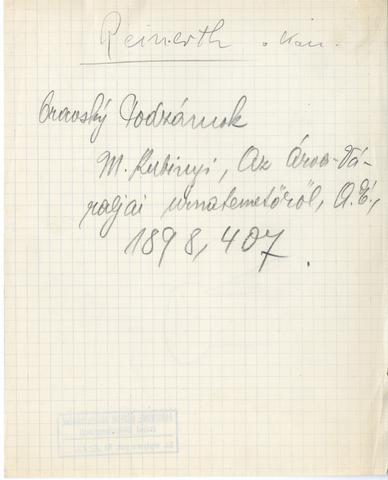 Reinerth
Oravský Podzámok
M. Kubinyi, Az Árva-Vá-
raljai urnatemetőről, A.É.,
1898, 407.